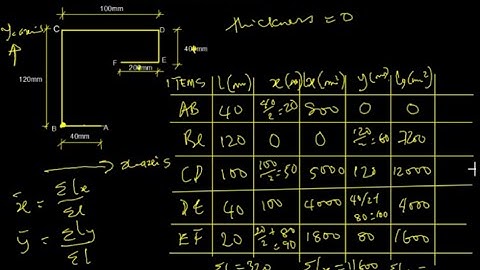 thickness = 0
100mm
C
D
y axis
400mm
F
E
200mm
120mm
B
A
40mm
x axis
x̄ = Σlx / Σl
ȳ = Σly / Σl
ITEMS l(m) x(m) lx(m²) y(m) ly(m²)
AB 40 40/2=20 800 0 0
BC 120 0 0 120/2=60 7200
CD 100 100/2=50 5000 120 12000
DE 40 100 4000 40/2+80=100 4000
EF 20 20/2+80=90 1800 80 1600
Σl=320 Σlx=11600 Σly=